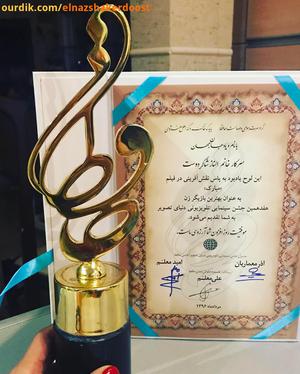 ourdik.com/elnazshakerdoost
سرکار خانم الناز شاکردوست
این لوح یادبود به پاس نقش‌آفرینی در فیلم
«مبارک»
به عنوان بهترین بازیگر زن
هفدهمین جشن سینمایی تلویزیونی دنیای تصویر
به شما تقدیم می‌شود.
موفقیت روزافزون شما آرزوی ماست.
آذر معماریان
امید معلم
علی معلم
مردادماه ۱۳۹۶